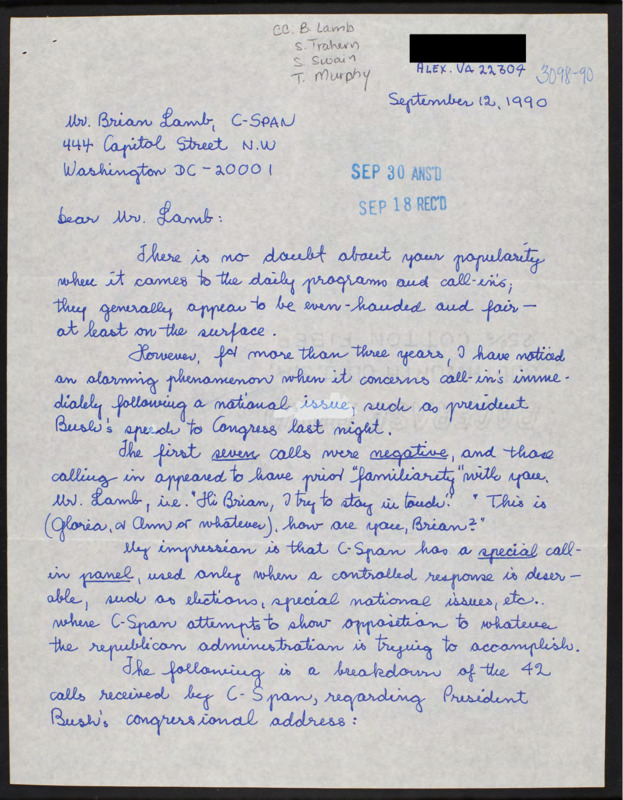 CC. B. Lamb
S. Trahern
S. Swain
T. Murphy
ALEX. VA 22304
3098-90
September 12, 1990
Mr. Brian Lamb, C-SPAN
444 Capitol Street N.W
Washington DC - 20001
SEP 30 ANS'D
SEP 18 REC'D
Dear Mr. Lamb:
There is no doubt about your popularity
when it comes to the daily programs and call-in's;
they generally appear to be even-handed and fair —
at least on the surface.
However, for more than three years, I have noticed
an alarming phenomenon when it concerns call-in's imme-
diately following a national issue, such as president
Bush's speech to Congress last night.
The first seven calls were negative, and those
calling in appeared to have prior "familiarity" with you,
Mr. Lamb, i.e. "Hi Brian, I try to stay in touch". "This is
(Gloria, or Ann or whatever), how are you, Brian?"
My impression is that C-Span has a special call-
in panel, used only when a controlled response is desir-
able, such as elections, special national issues, etc..
where C-Span attempts to show opposition to whatever
the republican administration is trying to accomplish.
The following is a breakdown of the 42
calls received by C-Span, regarding President
Bush's congressional address: